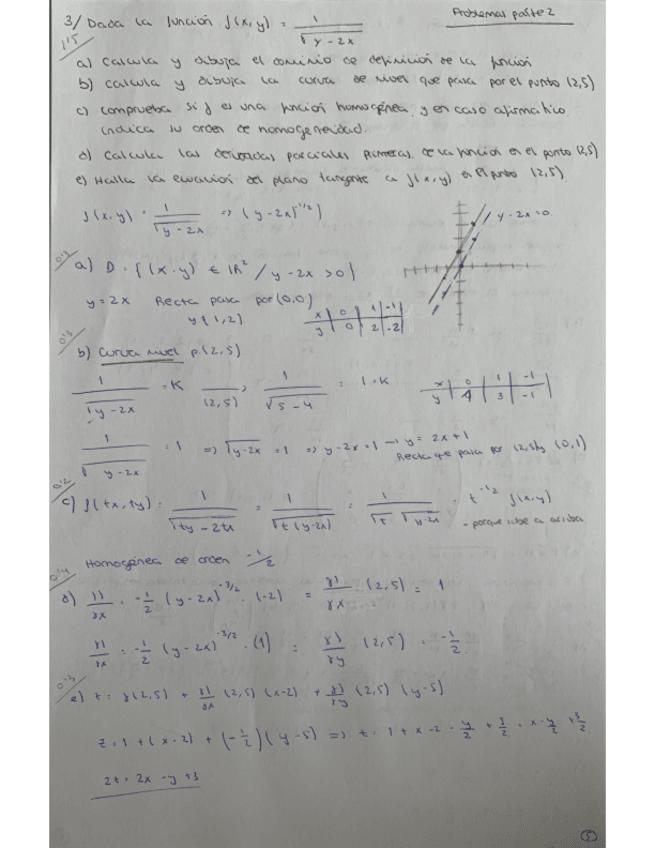 Problemas parte 2
3/ Dada la función f(x,y) = 1/√(y-2x)
1'5
a) Calcula y dibuja el dominio de definición de la función
b) Calcula y dibuja la curva de nivel que pasa por el punto (2,5)
c) Comprueba si f es una función homogénea, y en caso afirmativo
indica su orden de homogeneidad.
d) Calcula las derivadas parciales primeras de la función en el punto (2,5)
e) Halla la ecuación del plano tangente a f(x,y) en el punto (2,5)
f(x,y) = 1/√(y-2x) => (y-2x)^(-1/2)
y-2x=0
0'3
a) D = {(x,y) ∈ ℝ² / y-2x >0}
y=2x Recta pasa por (0,0)
y (1,2)
x | 0 | 1 | -1
y | 0 | 2 | -2
0'3
b) Curva nivel p.(2,5)
1/√(y-2x) = K (2,5) ; 1/√(5-4) = 1=K
x | 0 | 1 | -1
y | 1 | 3 | -1
1/√(y-2x) = 1 => √(y-2x) = 1 => y-2x=1 → y= 2x+1
Recta que pasa por (2,5) y (0,1)
0'2
c) f(tx,ty) = 1/√(ty-2tx) = 1/√(t(y-2x)) = 1/(√t √(y-2x)) = t^(-1/2) f(x,y)
- porque sube a arriba
Homogénea de orden -1/2
0'4
d) ∂f/∂x = -1/2 (y-2x)^(-3/2) · (-2) = ∂f/∂x (2,5) = 1
∂f/∂y = -1/2 (y-2x)^(-3/2) · (1) = ∂f/∂y (2,5) = -1/2
0'3
e) z = f(2,5) + ∂f/∂x (2,5) (x-2) + ∂f/∂y (2,5) (y-5)
z = 1 + (x-2) + (-1/2)(y-5) => z = 1 + x -2 - y/2 + 5/2 = x - y/2 + 3/2
2z = 2x - y +3
5